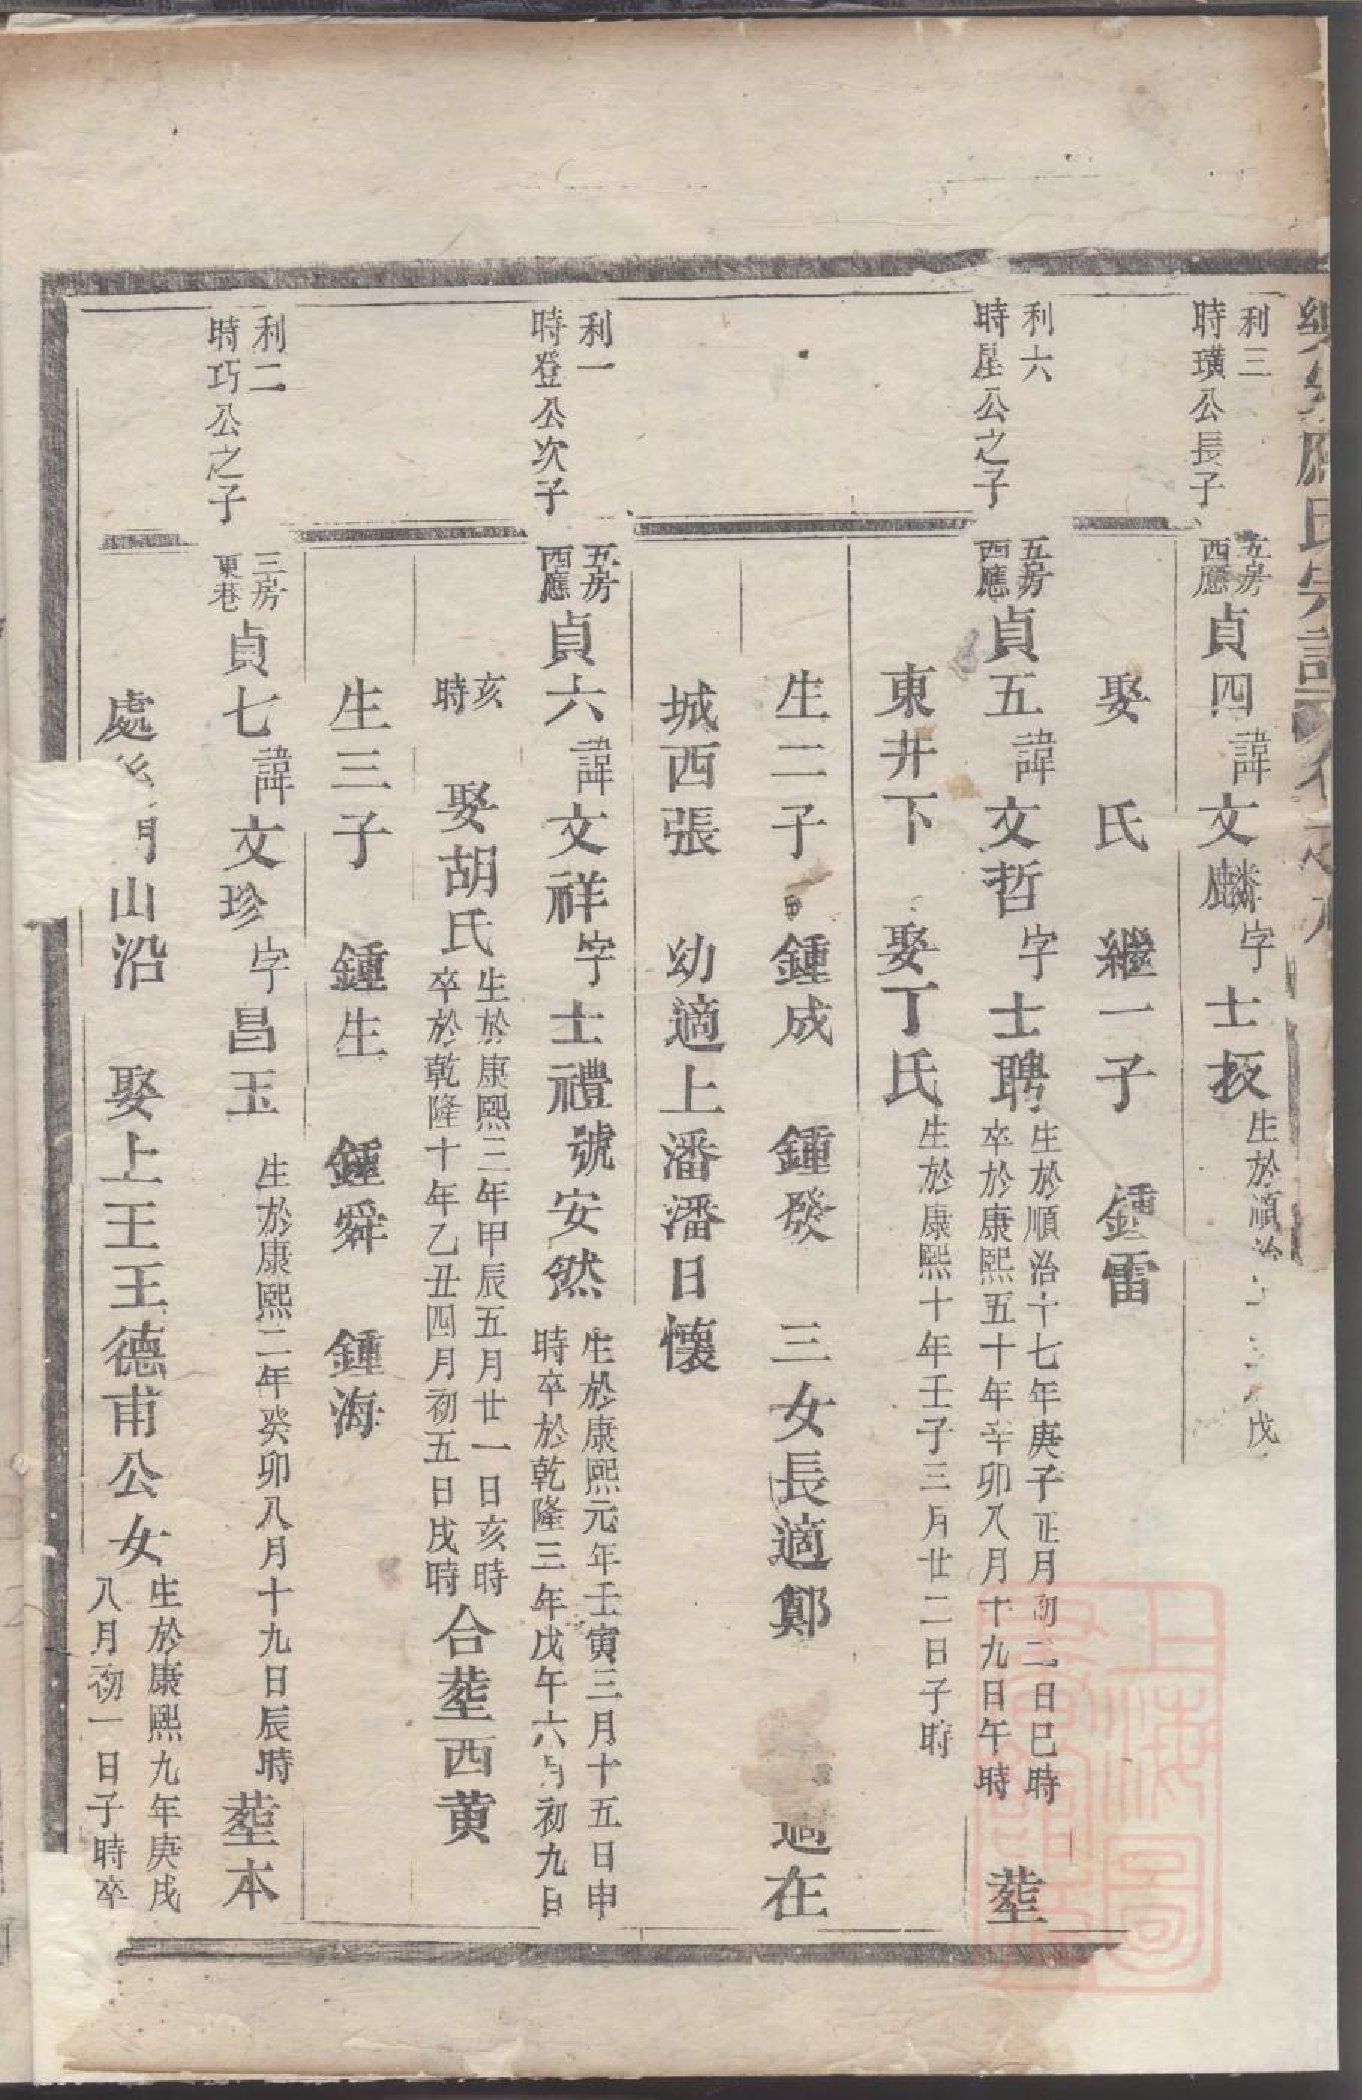 應氏宗譜
利三
時璜公長子
五房
西應
貞四諱文麟字士扳
生於順治
戊
娶氏 繼一子 鍾雷
利六
時星公之子
五房
西應
貞五諱文哲字士聘
生於順治十七年庚子正月初二日巳時
卒於康熙五十年辛卯八月十九日午時
塟
東井下 娶丁氏
生於康熙十年壬子三月廿二日子時
生二子 鍾成 鍾發 三女長適鄭 適在
城西張 幼適上潘潘日懷
利一
時登公次子
五房
西應
貞六諱文祥字士禮號安然
生於康熙元年壬寅三月十五日申
時卒於乾隆三年戊午六月初九日
亥
時
娶胡氏
生於康熙三年甲辰五月廿一日亥時
卒於乾隆十年乙丑四月初五日戌時
合塟西黄
生三子 鍾生 鍾舜 鍾海
利二
時巧公之子
三房
東巷
貞七諱文珍字昌玉
生於康熙二年癸卯八月十九日辰時
塟本
處 山沿 娶上王王德甫公女
生於康熙九年庚戌
八月初一日子時卒
上海圖書館藏